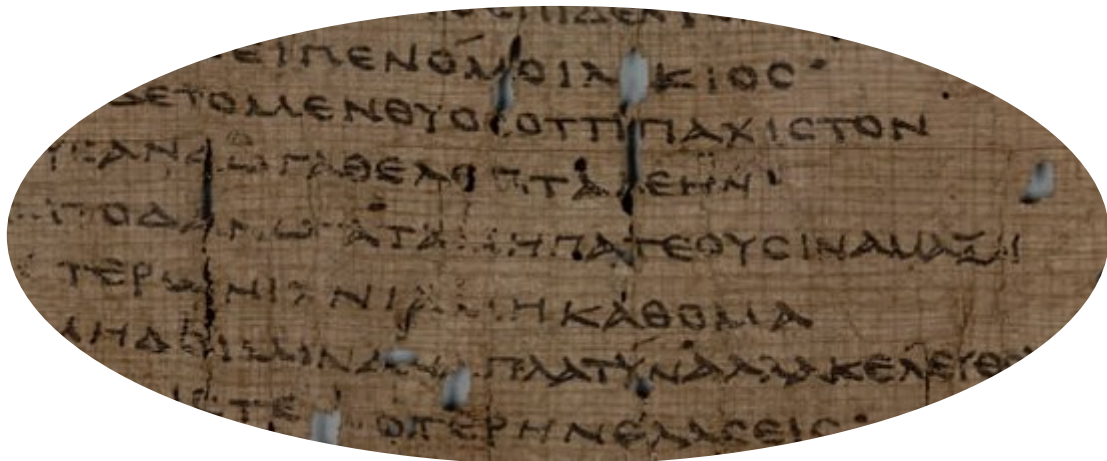 ΕΠΙΔΕΛΤ
ΕΙΠΕΝΟΜΟΙΛ ΚΙΟϹ·
ΔΕΤΟΜΕΝΘΥΟϹΟΤΤΙΠΑΧΙϹΤΟΝ
ϹΑΝΔΩΓΑΘΕΛΕΠΤΑΛΕΗΝ·
ΤΟΔΑΝΩΓΑΤΑΜΗΠΑΤΕΟΥϹΙΝΑΜΑΞΑΙ
ΤΕΡΩΝΙΧΝΙΑΜΗΚΑΘΟΜΑ
ΜΗΔΟΙΜΟΝΑΝΑΠΛΑΤΥΝΑΛΛΑΚΕΛΕΥΘΟ
ΟΤΕΡΗΝΕΛΑϹΕΙϹ·